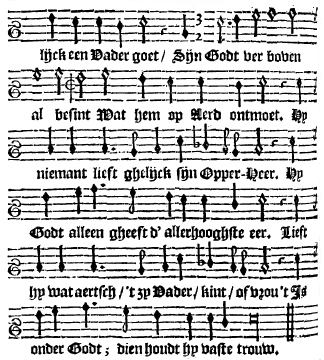 lijck een Vader goet / Sijn Godt ver boven
al besint Wat hem op Aerd ontmoet. Hy
niemant lieft ghelijck sijn Opper-Heer. Hy
Godt alleen gheeft d'allerhooghste eer. Lieft
hy wat aertsch / 't zy Vader / kint / of vrou 't Is
onder Godt ; dien houdt hy vaste trouw.